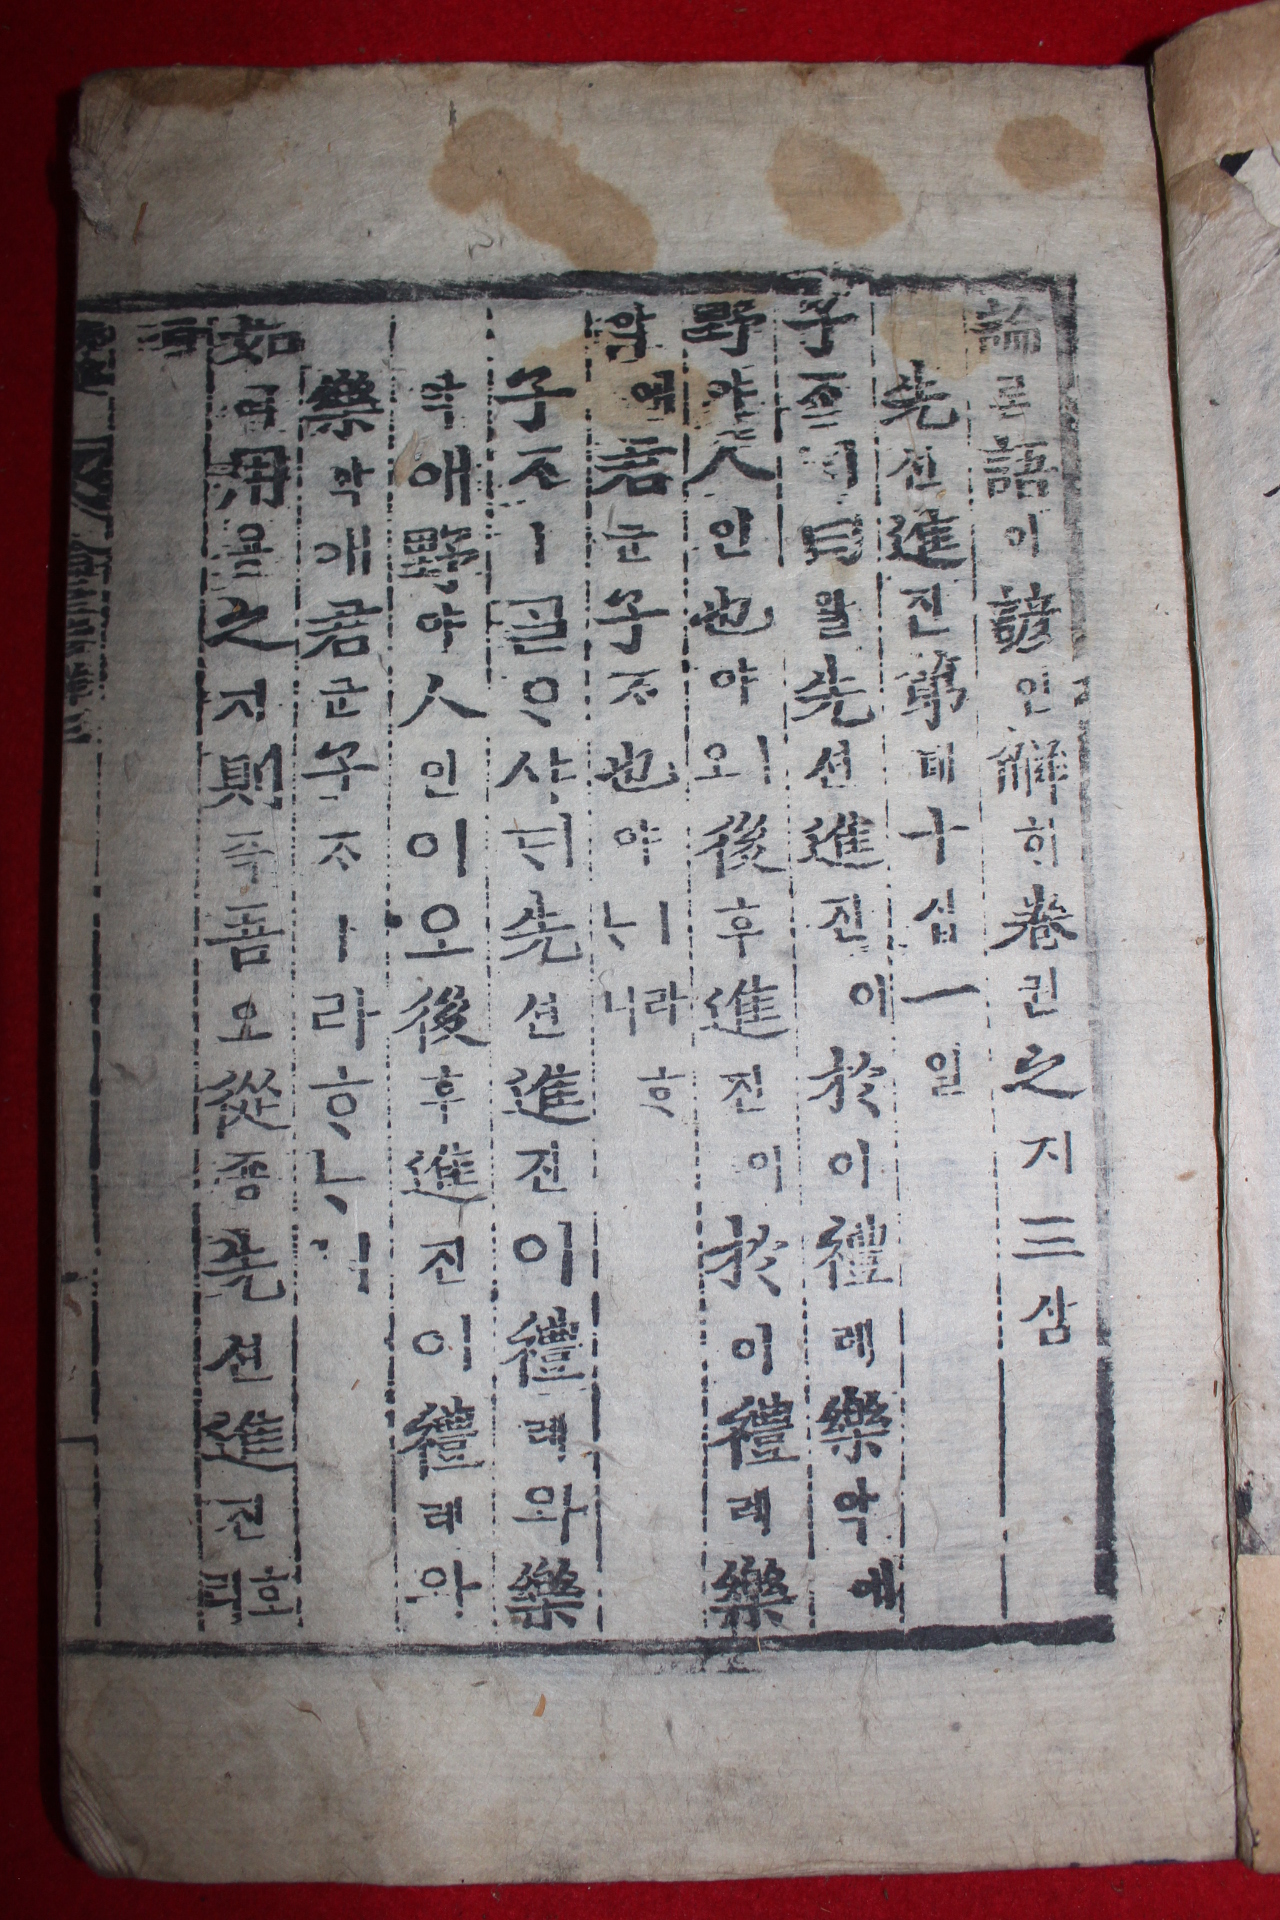 論론語어諺언解ᄒᆡ卷권之지三삼
先션進진第뎨十십一일
子ᄌᆞㅣ曰왈先션進진이於어禮례樂악애
野야人인也야ㅣ오後후進진이於어禮례樂
악애君군子ᄌᆞ也야ㅣ라ᄒᆞᄂᆞ니
子ᄌᆞㅣᄀᆞᆯᄋᆞ샤ᄃᆡ先션進진이禮례와樂
악애野야人인이오後후進진이禮례와
樂악애君군子ᄌᆞㅣ라ᄒᆞᄂᆞ니
如여用용之지則즉吾오從죵先션進진호
리라